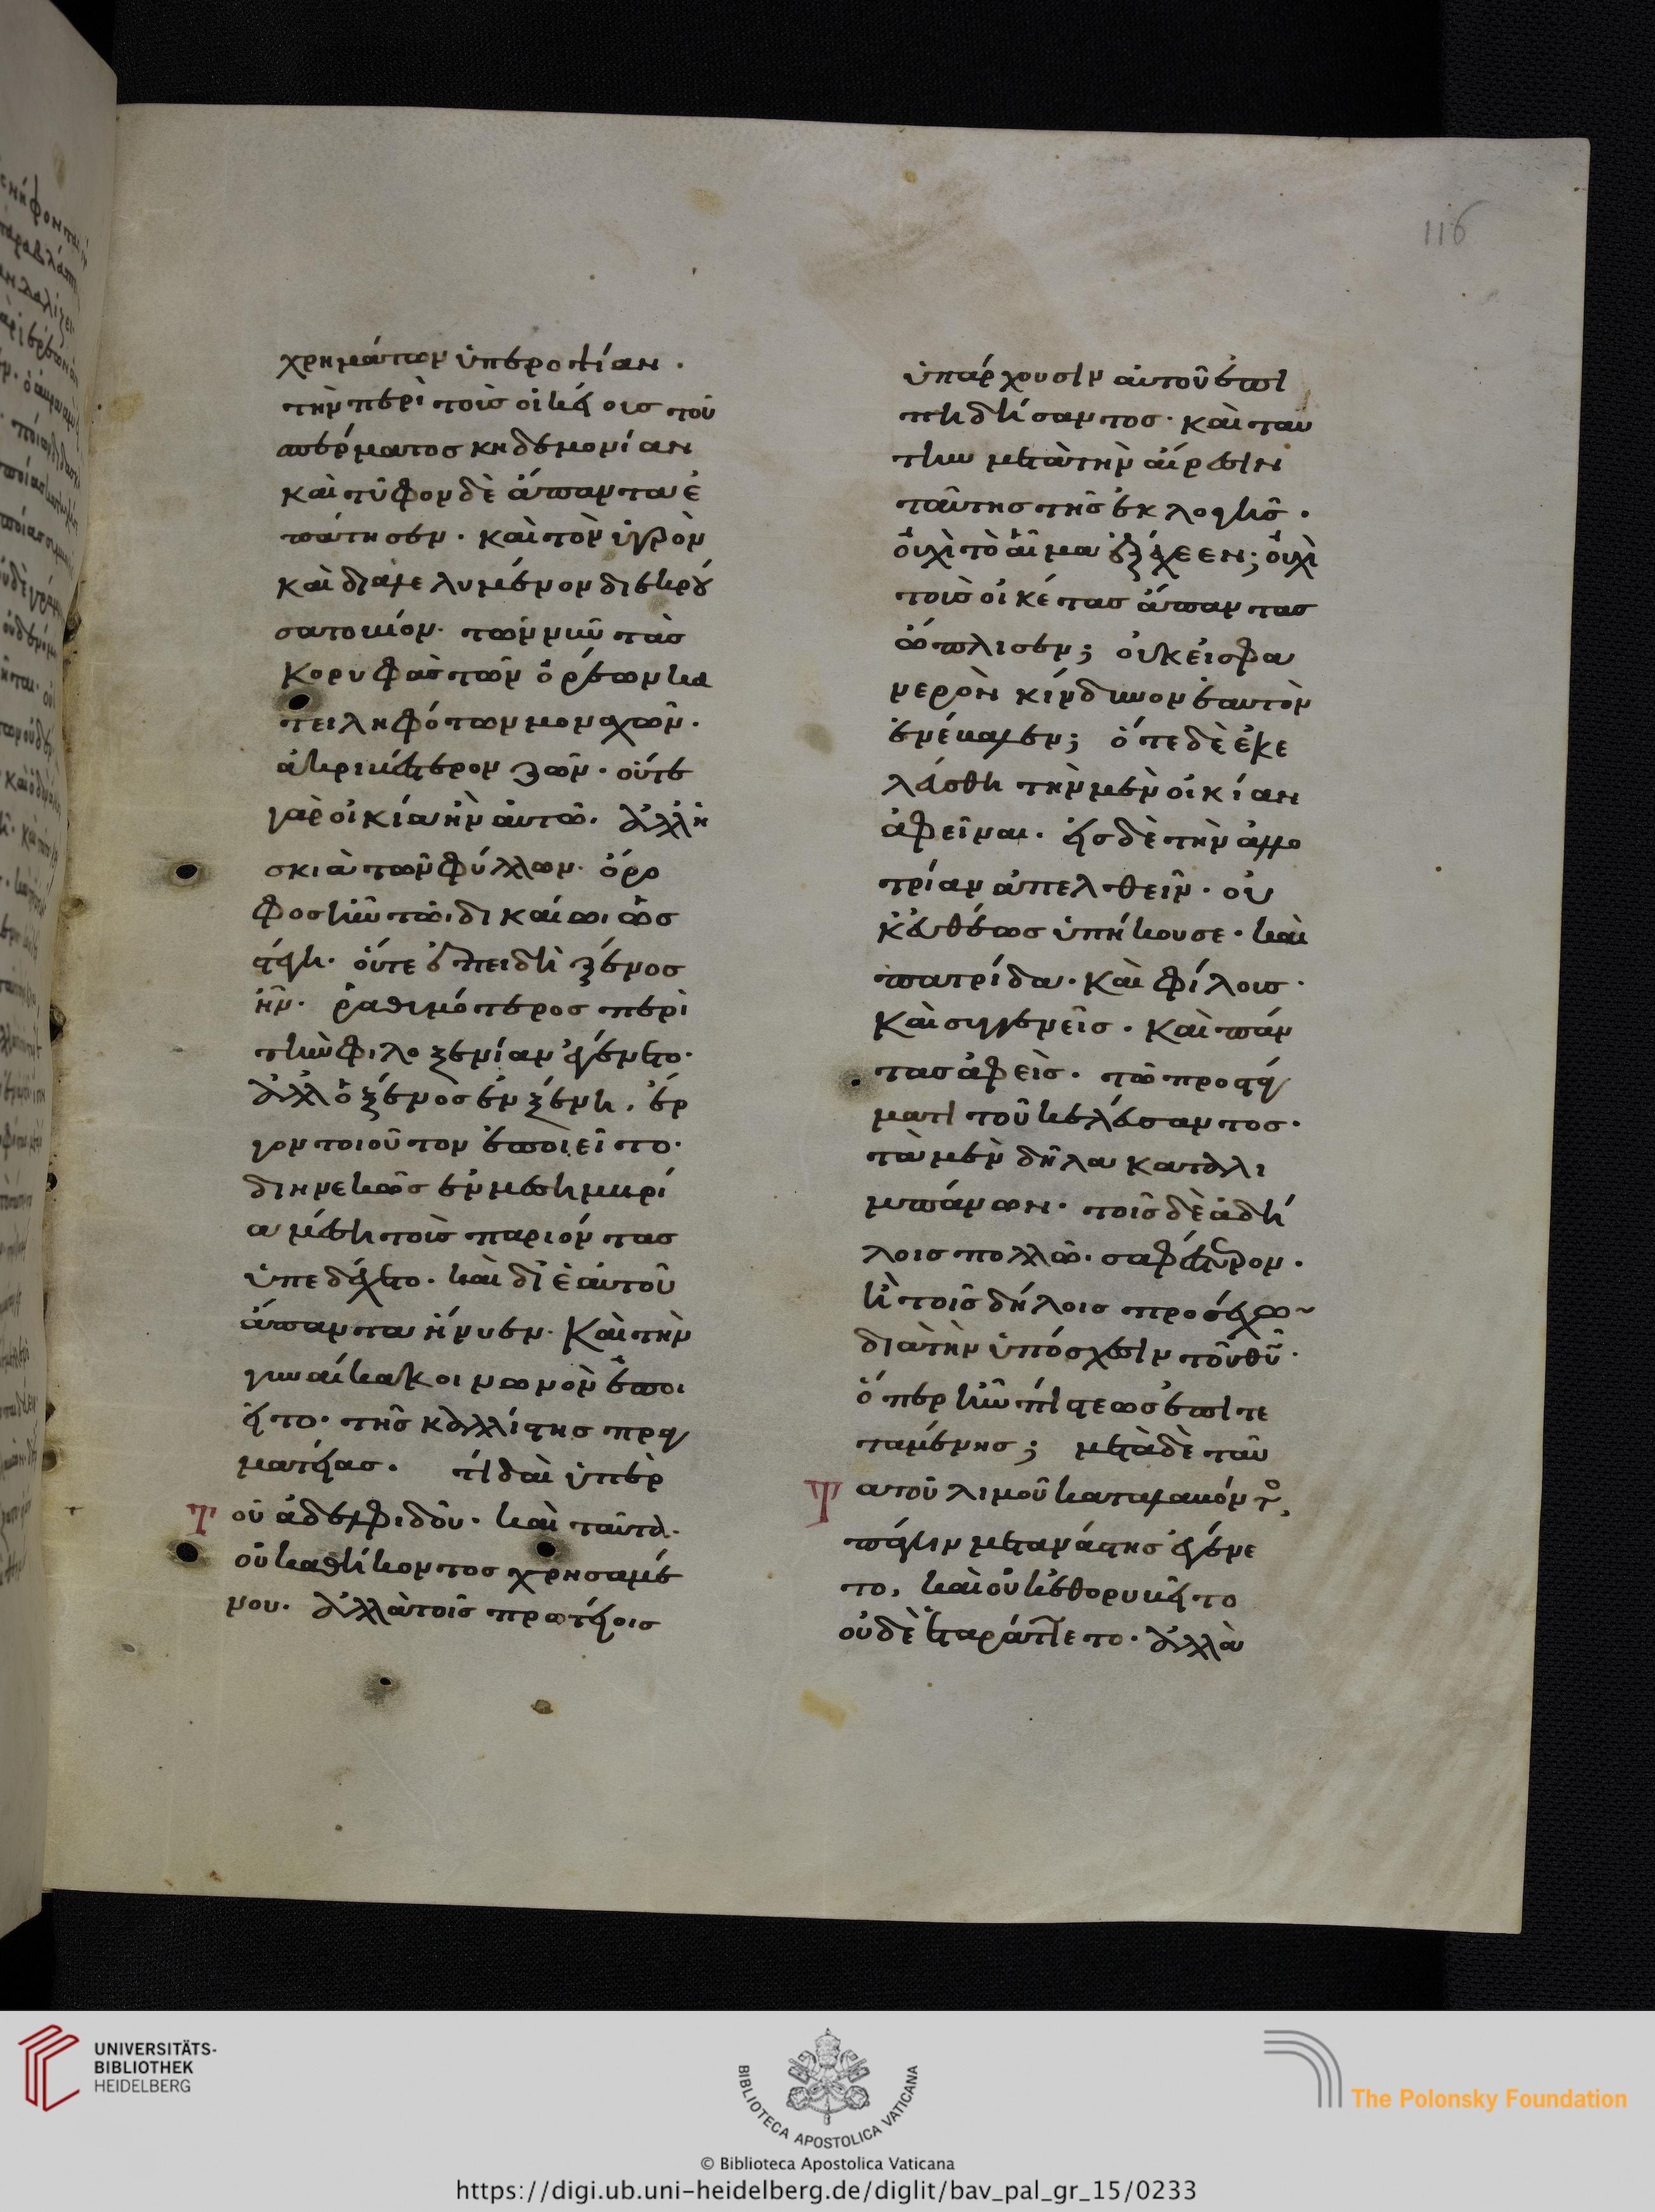 116
χρημάτων ὑπεροψίαν.
τὴν περὶ τοὺς οἰκείους τοῦ
σπέρματος κηδεμονίαν
καὶ τύφον δὲ ἅπαντα ἐ
πάτησεν. καὶ τὸν ὑγρὸν
καὶ διαλελυμένον διεκρού
σατο βίον. τῶν νῦν τὰς
κορυφὰς τῶν ὀρέων κα
τειληφότων μοναχῶν.
ἀκριβέστερον ζῶν. οὔτε
γὰρ οἰκία ἦν αὐτῶ. ἀλλ' ἡ
σκιὰ τῶν φύλλων. ὄρο
φος ἦν τῶι δικαίωι ὡς
στέγη. οὔτε ἐπειδὴ ξένος
ἦν. ῥαθυμότερος περὶ
τὴν φιλοξενίαν ἐγένετο.
ἀλλ' ὁ ξένος ἐν ξένη. ἔρ
γον τοιοῦτον ἐποιεῖτο.
διηνεκῶς ἐν μεσημβρί
α μέση τοὺς παριόντας
ὑπεδέχετο. καὶ δι' ἑαυτοῦ
ἅπαντα ἤνυεν. Καὶ τὴν
γυναῖκα κοινωνὸν ἐποι
εῖτο. τῆς καλλίστης πραγ
ματείας. τί δαὶ ὑπὲρ
Τοῦ ἀδελφιδοῦ. καὶ ταῦτα.
οὐ καθήκοντος χρησαμέ
νου. ἀλλὰ τοῖς πρωτείοις
ὑπάρχουσιν αὐτοῦ ἐπι
πηδήσαντος. καὶ ταύ
την μετὰ τὴν αἵρεσιν
ταύτης τῆς ἐκλογῆς.
οὐχὶ τὸ αἷμα ἐξέχεεν; οὐχὶ
τοὺς οἰκέτας ἅπαντας
ὥπλισεν; οὐκ εἰς φα
νερὸν κίνδυνον ἑαυτὸν
ἐνέβαλεν; ὅτε δὲ ἐκε
λεύσθη τὴν μὲν οἰκίαν
ἀφεῖναι. εἰς δὲ τὴν ἀλλο
τρίαν ἀπελθεῖν. οὐ
κ εὐθέως ὑπήκουσε. καὶ
πατρίδα. καὶ φίλους.
καὶ συγγενεῖς. καὶ πάν
τας ἀφεὶς. τῶ προστάγ
ματι τοῦ κελεύσαντος.
τὰ μὲν δῆλα καταλι
μπάνων. τοῖς δὲ ἀδή
λοις πολλῶ. σαφέστερον.
ἢ τοῖς δήλοις προσέχων
διὰ τὴν ὑπόσχεσιν τοῦ θῦ.
ὅπερ ἦν πίστεως ἐπιτε
ταμένης; μετὰ δὲ ταῦ
Τα τοῦ λιμοῦ καταλαβόντος,
πάλιν μετανάστης ἐγένε
το, καὶ οὐκ ἐθορυβεῖτο
οὐδὲ ἐταράττετο. ἀλλὰ
UNIVERSITÄTS-
BIBLIOTHEK
HEIDELBERG
BIBLIOTECA APOSTOLICA VATICANA
The Polonsky Foundation
© Biblioteca Apostolica Vaticana
https://digi.ub.uni-heidelberg.de/diglit/bav_pal_gr_15/0233